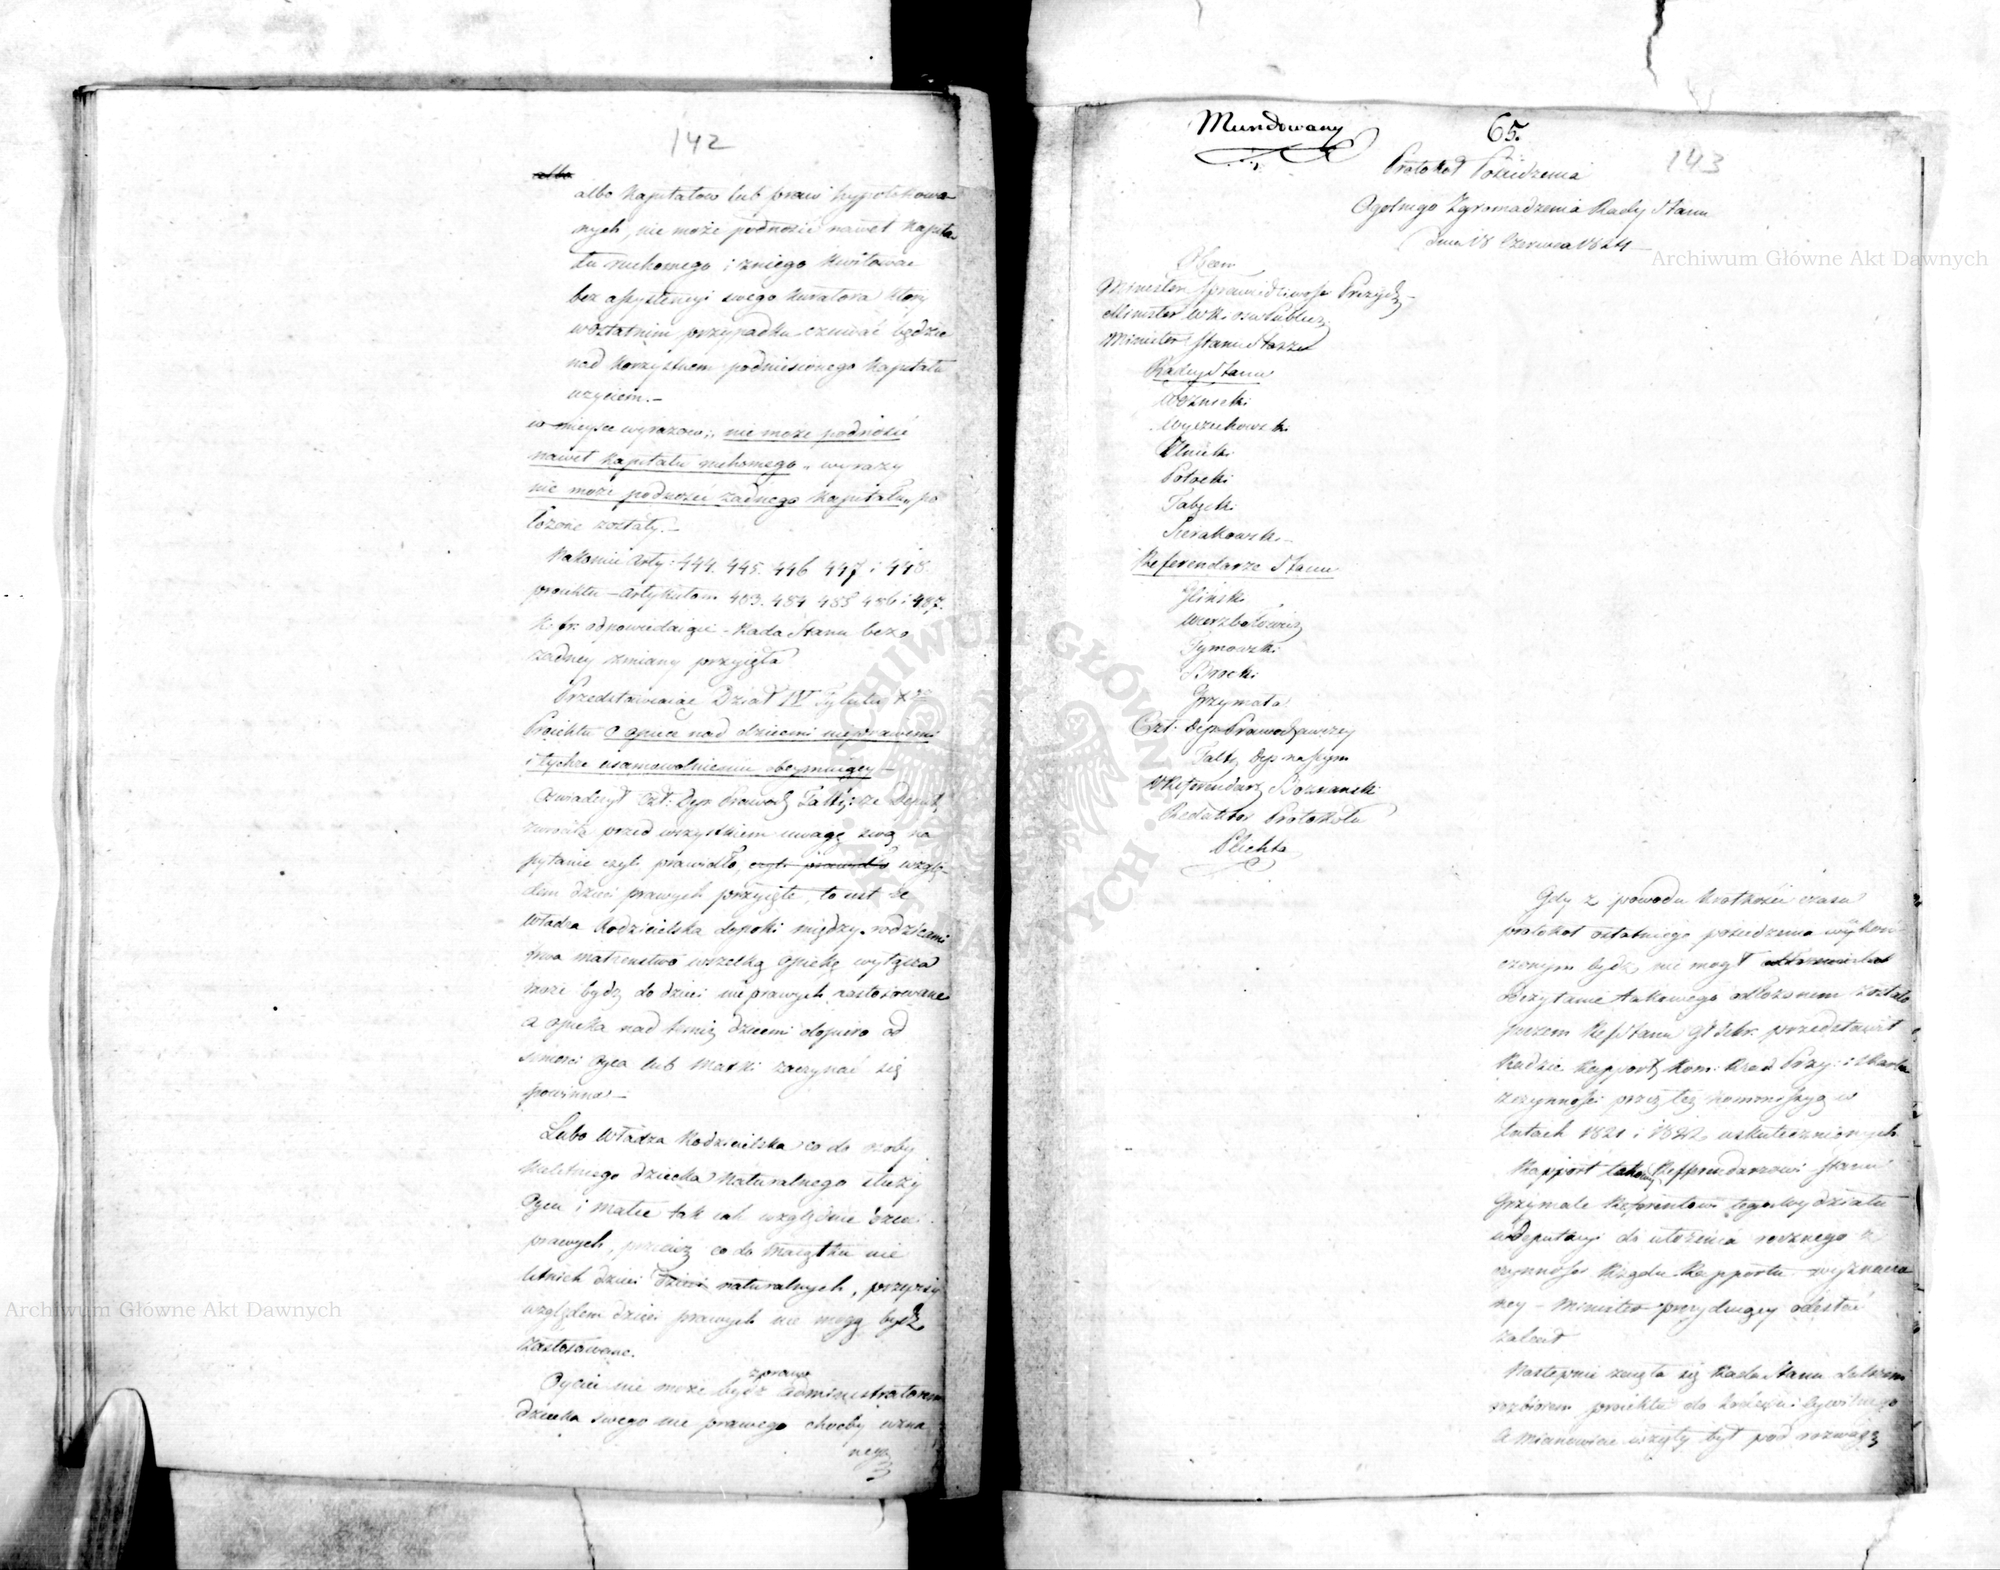 142
albo
albo kapitałow lub praw hypotekowa-
nych, nie może podnosić nawet kapita-
łu ruchomego i z niego kwitować
bez assystencyi swego kuratora który
w ostatnim przypadku czuwać będzie
nad korzystnem podniesionego kapitału
użyciem.-
w miejsce wyrazow; nie może podnosić
nawet kapitału ruchomego „ wyrazy
nie może podnosić żadnego kapitału„ po
łożone zostały.-
Nakoniec arty: 444. 445. 446 447 i 448.
proiektu - artykułom 483. 484 485 486 i 487.
K. fr. odpowiadaiące - Rada Stanu bez
żadney zmiany przyięła
Przedstawiaiąc Dział IV Tytułu X
Proiektu o opiece nad dziećmi nieprawemi
i tychże usamowolnieniu obeymuiący -
oświadczył Czł: Dep: Prawod: że Deput:
zwróciła przed wszystkiem uwagę swą na
pytanie czyli prawidło, czyli prawidło wzglę-
dem dzieci prawych przyięte, to iest że
władza Rodzicielska dopóki między rodzicami
trwa małżeństwo wszelką opiekę wyłącza
może bydź do dzieci nieprawych zastosowane
a opieka nad temiż dziećmi dopiero od
śmierci Oyca lub Matki zaczynać się
powinna -
Lubo Władza Rodzicielska co do osoby
nieletniego dziecka naturalnego służy
Oycu i Matce tak iak względnie dzieci
prawych, przecież co do Maiątku nie
letnich dzieci dzieci naturalnych, przepisy
względem dzieci prawych nie mogą bydź
zastosowane.
Oyciec nie może bydź z prawa administratorem
dziecka swego nie prawego choćby uzna
nego
Mundowany
65.
143
Protokół Posiedzenia
Ogólnego Zgromadzenia Rady Stanu
dnia 18 Czerwca 1824
Obecni
Minister Sprawiedliwości Prezyd:
Minister W.R. i Ośw Publicz:
Minister Stanu Staszic
Radcy Stanu
Woźnicki
Wyczechowski
Potocki
Sierakowski
Referendarze Stanu
Gliński
Wierzbołowicz
Tymowski
Brocki
Grzymała
Czł: Dep: Prawodawczey
W Referendarz Poznanski
Redaktor Protokołu
Plichta
Gdy z powodu krótkości czasu
protokoł ostatniego posiedzenia wykoń-
czonym bydź nie mógł
odczytanie takowego odłożonem zostało
poczem Ref Stanu przedstawił
Radzie Rapport Kom: Rząd Przy: i Skarbu
z czynności przez tęż kommissyą w
latach 1821 i 1822 uskutecznionych
Rapport takowy Refferendarzowi Stanu
Grzymale Referentowi tego wydziału
w Deputacyi do ułożenia rocznego z
czynności Rządu Rapportu wyznaczo
ney - Minister prezyduiący odesłać
zalecił
Następnie zaięła się Rada Stanu dalszem
rozbiorem proiektu do księgi i Cywilnego
a mianowicie wzięty był pod rozwagę
Archiwum Główne Akt Dawnych
Archiwum Główne Akt Dawnych
ARCHIWUM GŁÓWNE AKT DAWNYCH